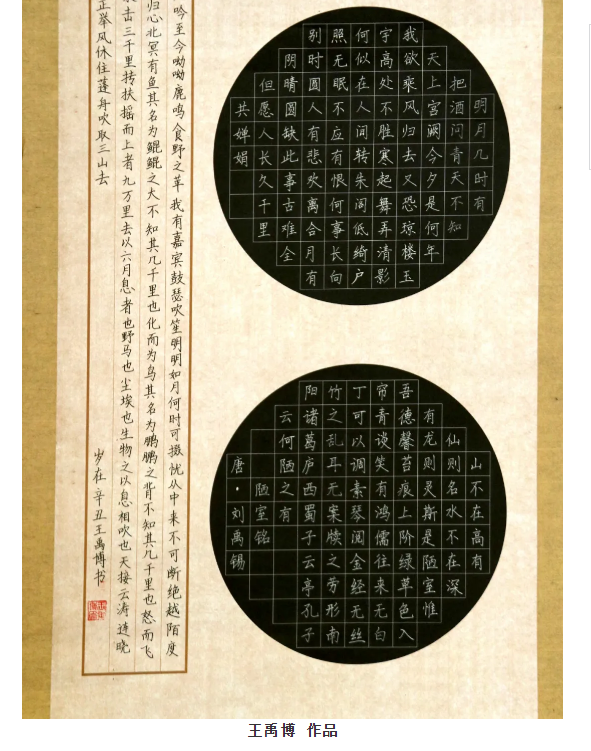 明月几时有
把酒问青天不知
天上宫阙今夕是何年
我欲乘风归去又恐琼楼玉
宇高处不胜寒起舞弄清影
何似在人间转朱阁低绮户
照无眠不应有恨何事长向
别时圆人有悲欢离合月有
阴晴圆缺此事古难全
但愿人长久千里
共婵娟
山不在高有
仙则名水不在深
有龙则灵斯是陋室惟
吾德馨苔痕上阶绿草色入
帘青谈笑有鸿儒往来无白
丁可以调素琴阅金经无丝
竹之乱耳无案牍之劳形南
阳诸葛庐西蜀子云亭孔子
云何陋之有
陋室铭
唐·刘禹锡
吟至今呦呦鹿鸣食野之苹我有嘉宾鼓瑟吹笙明明如月何时可掇忧从中来不可断绝越陌度
归心北冥有鱼其名为鲲鲲之大不知其几千里也化而为鸟其名为鹏鹏之背不知其几千里也怒而飞
击三千里转扶摇而上者九万里去以六月息者也野马也尘埃也生物之以息相吹也天接云涛连晓
正举风休住蓬舟吹取三山去
岁在辛丑王禹博书
王禹博 作品